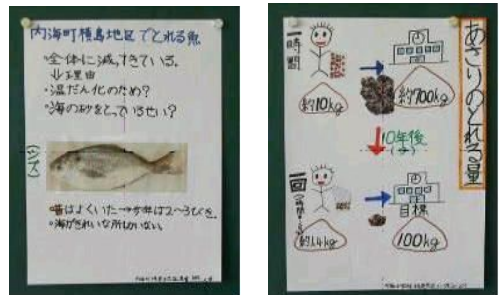 内海町横島地区でとれる魚
・全体に減ってきている。
↓理由
・温だん化のため?
・海の砂をとっているせい?
・昔はよくいた→今年は2~3びき
・海がきれいな所しかいない。
あさりのとれる量
一時間
約10kg
約700kg
10年後
一回
約1.4kg
目標
100kg